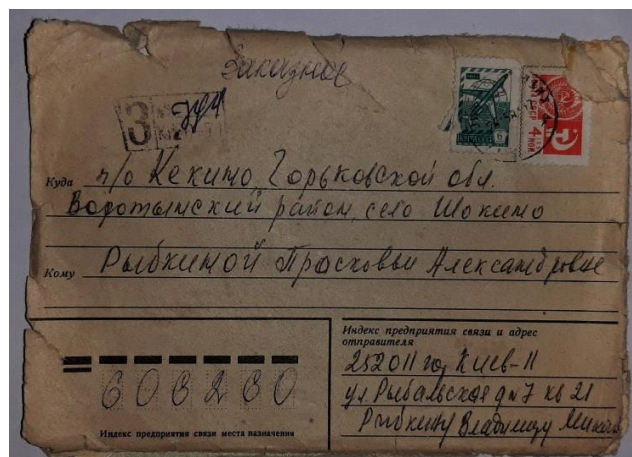 Заказное
З 394
Куда п/о Кекино Горьковской обл.
Водотынский район, село Шокино
Кому Рыбкиной Прасковьи Александровне
Индекс предприятия связи и адрес
отправителя
252011 гор Киев-11
ул Рыбальская д N 7 кв 21
Рыбкину Владимиру
606280
Индекс предприятия связи места назначения